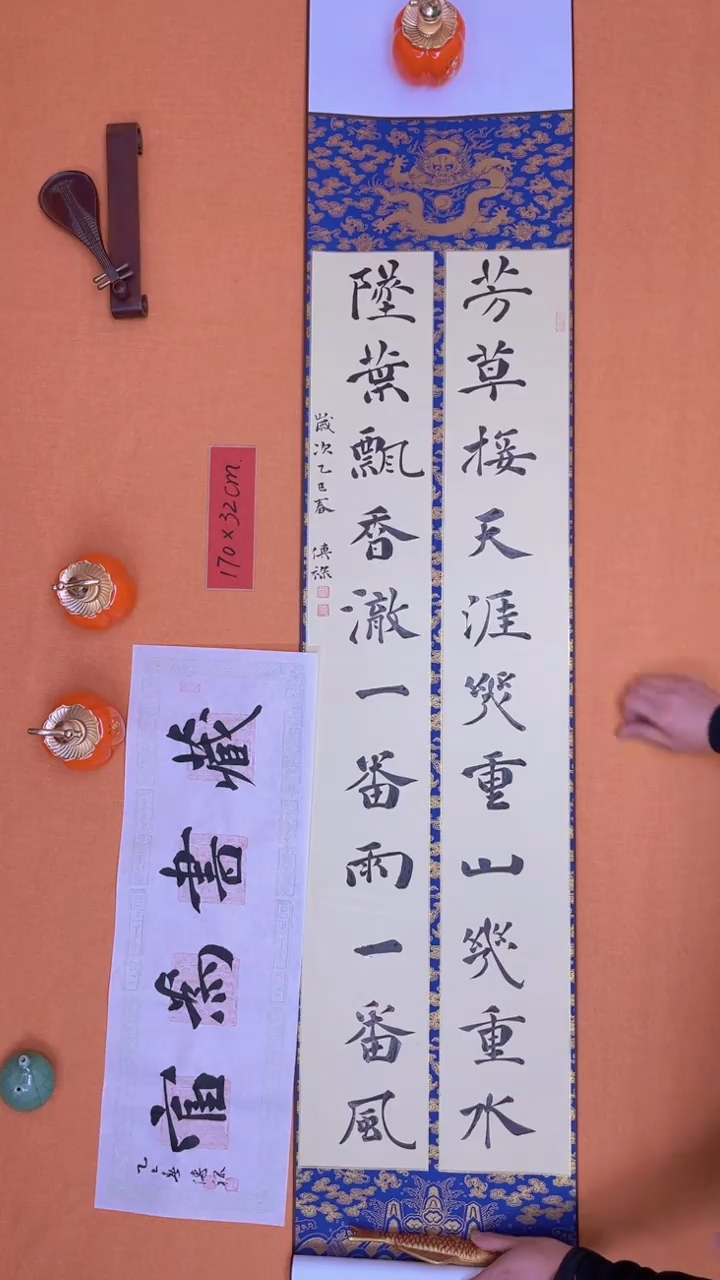 芳草接天涯幾重山幾重水
墜葉飄香澈一番雨一番風
歲次乙巳春
170×32cm.
藏書為富
乙巳春